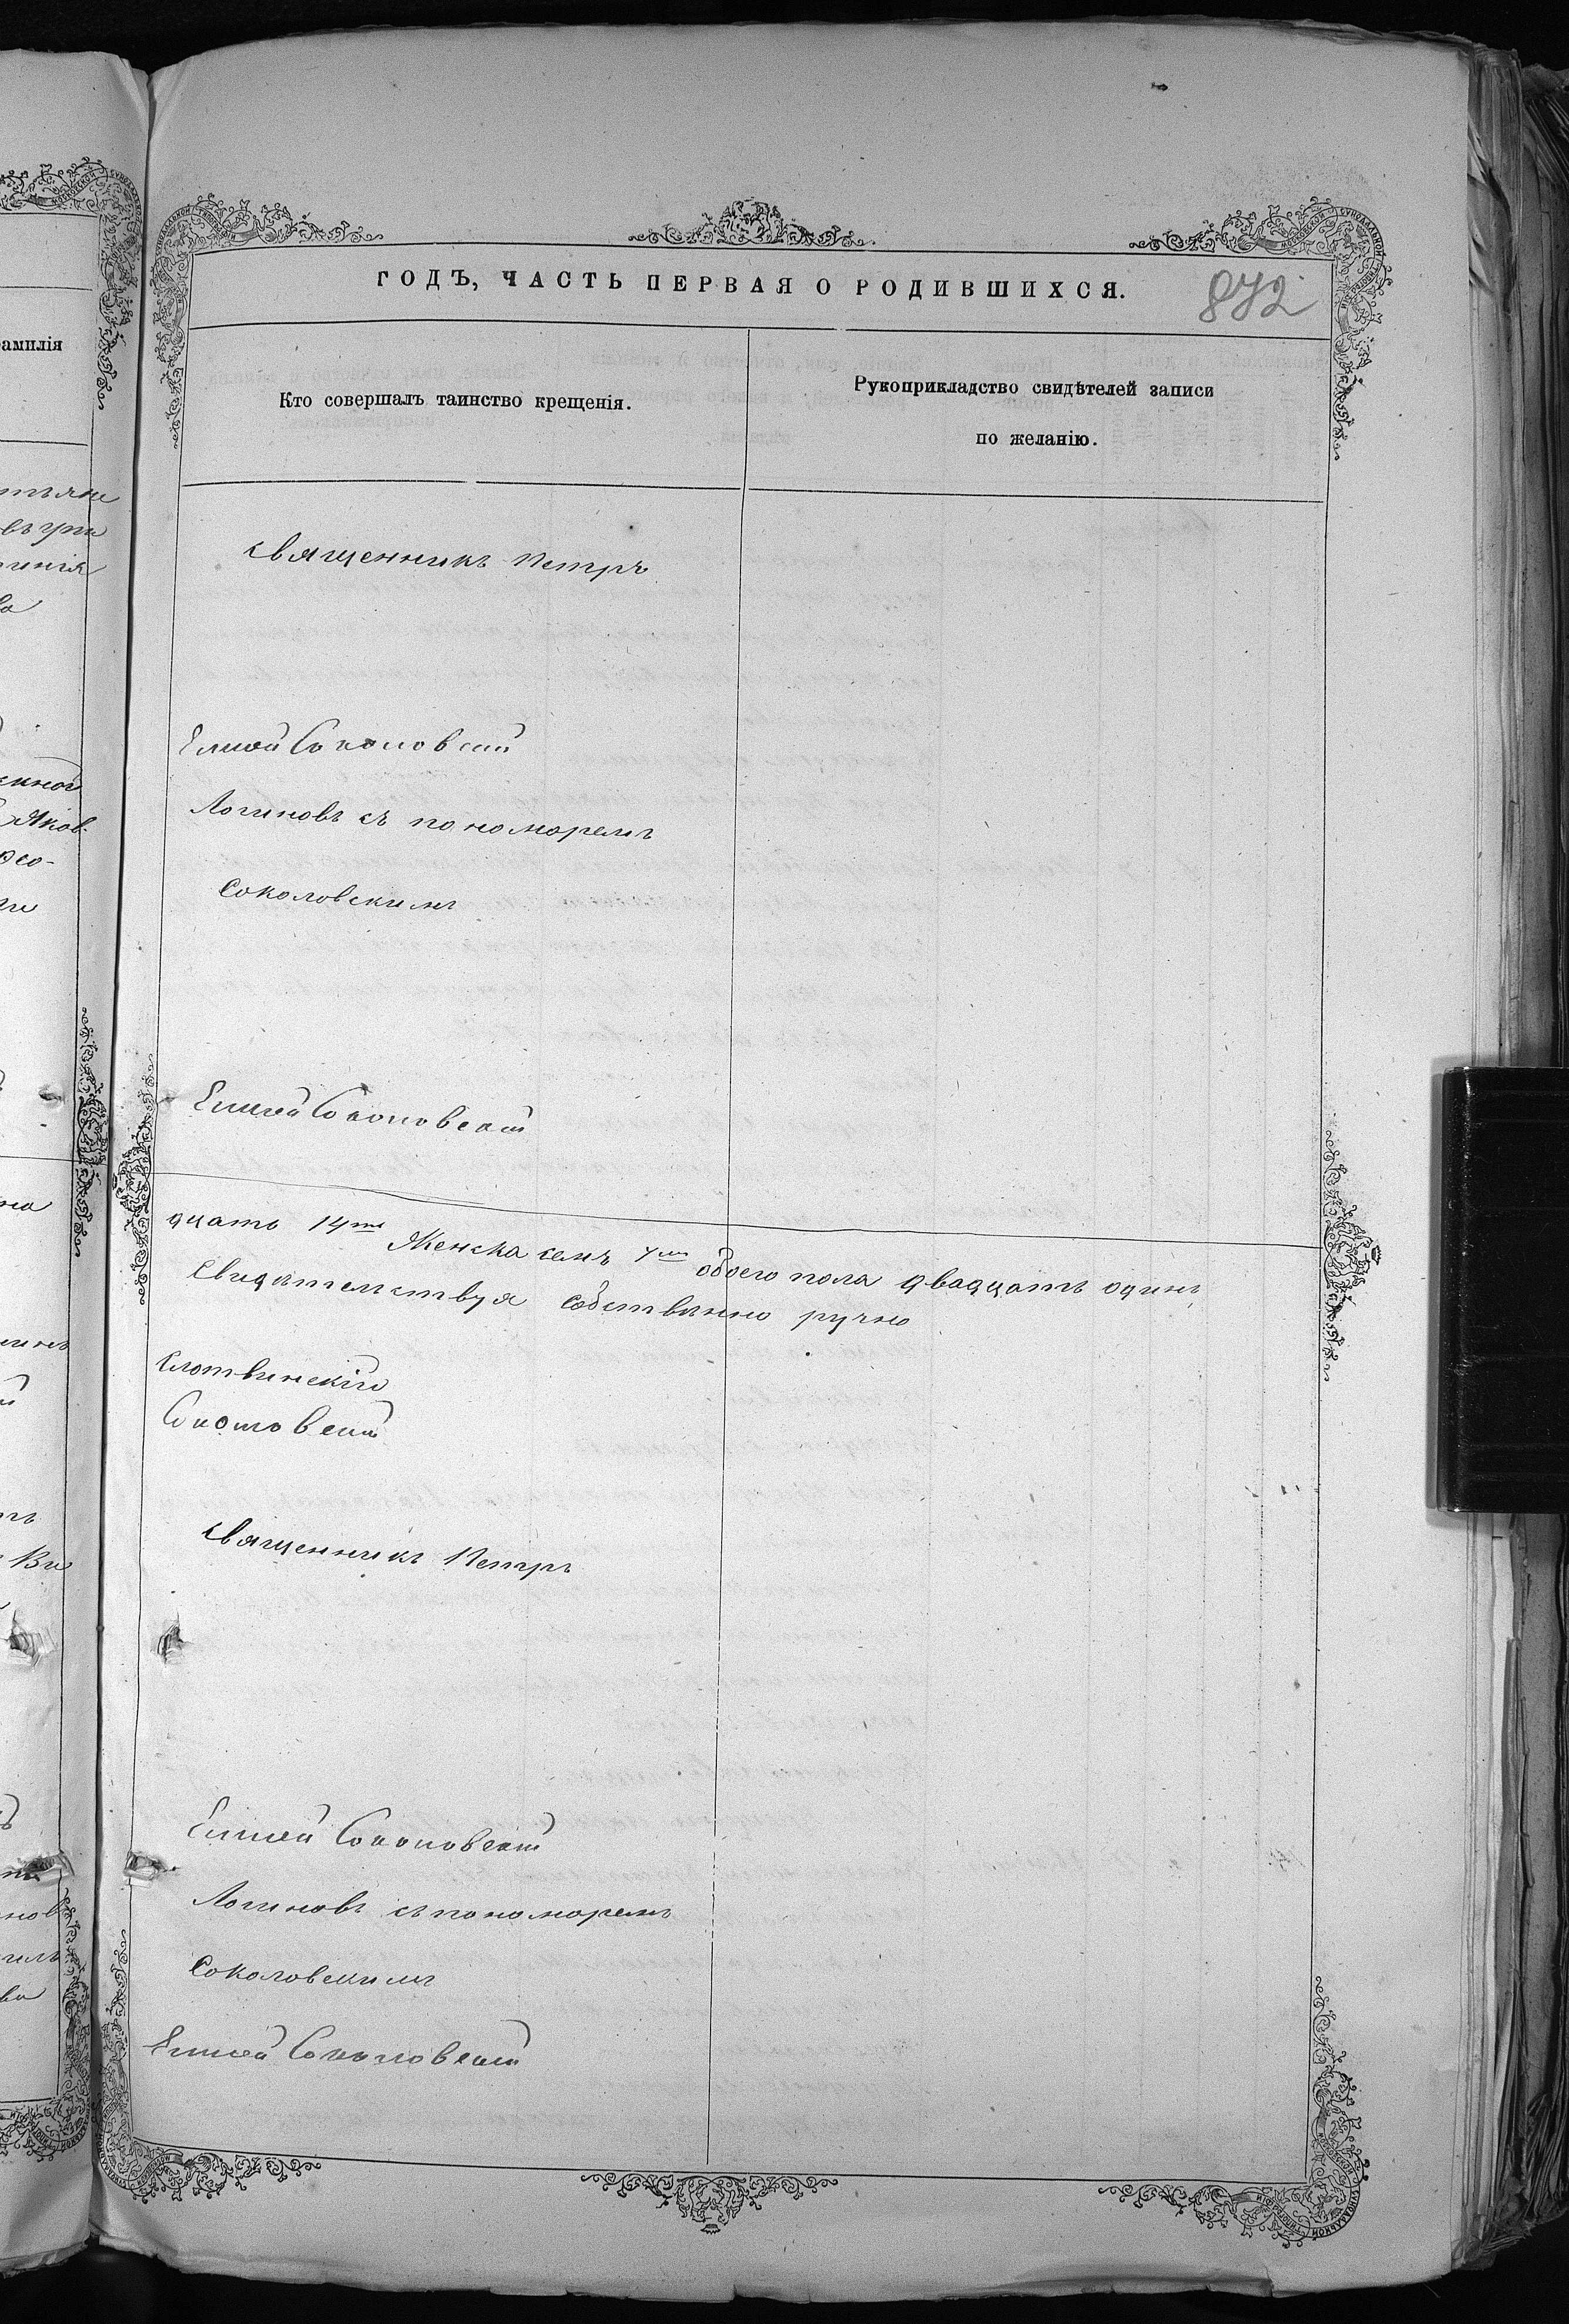 ГОДЪ, ЧАСТЬ ПЕРВАЯ О РОДИВШИХСЯ.
872
амилія
Кто совершалъ таинство крещенія.
Рукоприкладство свидѣтелей записи
по желанію.
священникъ Петръ
Елисей Соколовскій
Логиновъ съ пономоремъ
Соколовскимъ
Елисей Соколовскій
дцать 14ть Женска семь 7мь обоего пола двадцать одинъ
Свидѣтельствуя собственно ручно
Слотвинскій
Соколовскій
священникъ Петръ
Елисей Соколовскій
Логиновъ съ пономоремъ
Соколовскимъ
Елисей Соколовскій